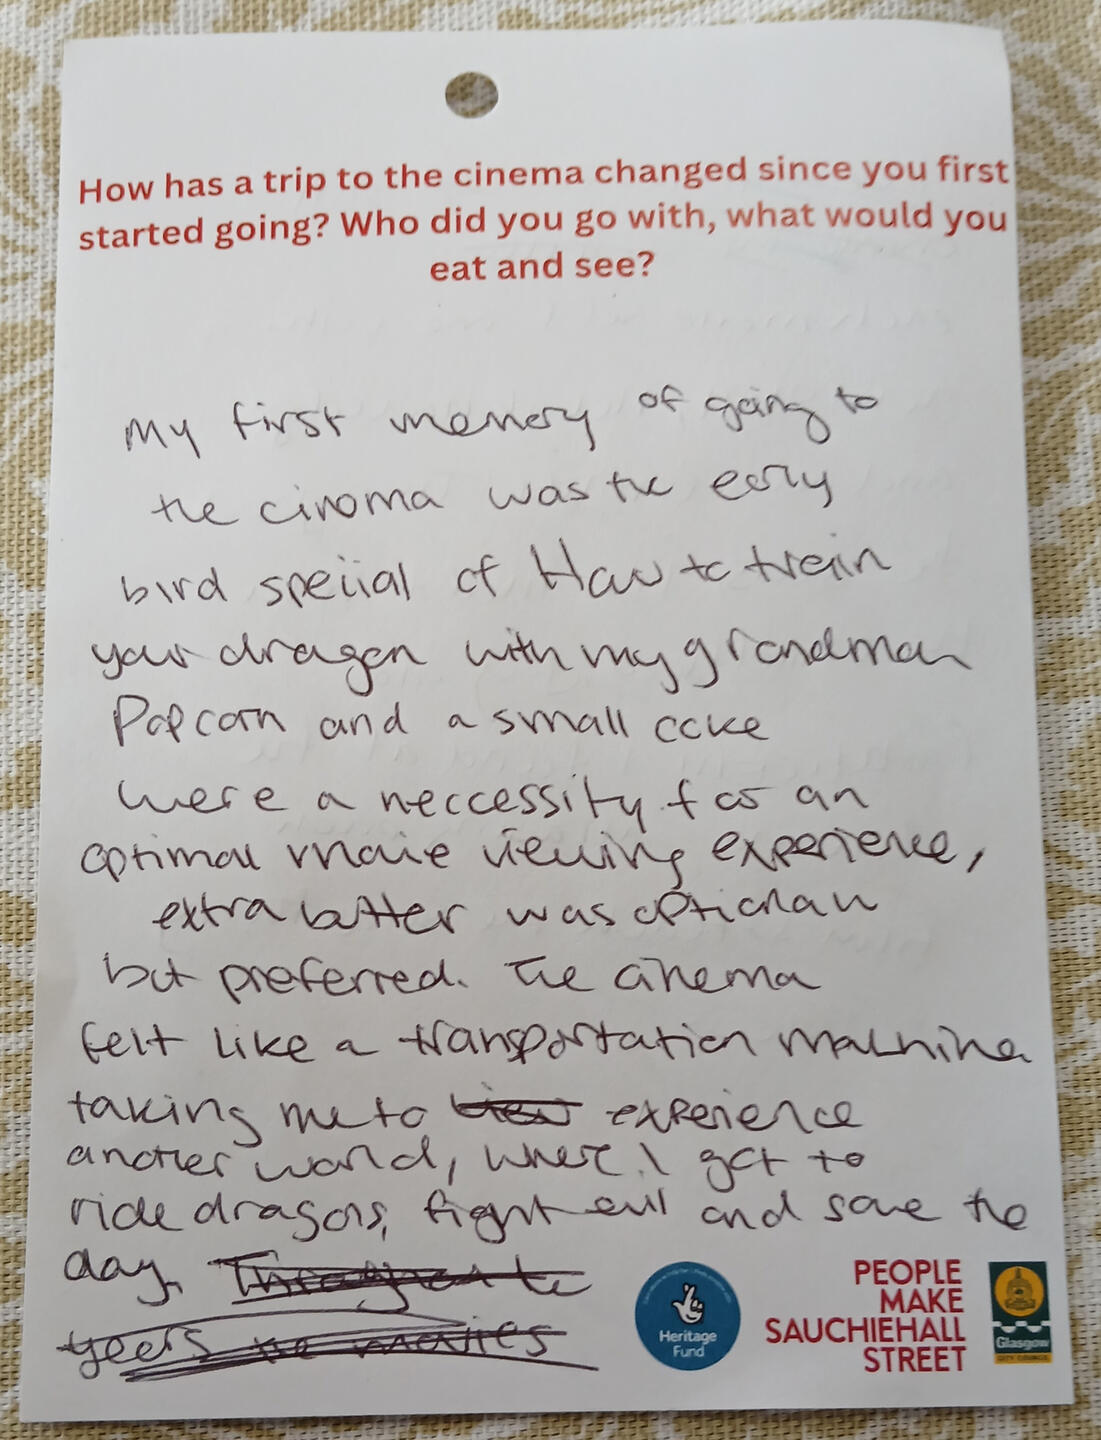 How has a trip to the cinema changed since you first
started going? Who did you go with, what would you
eat and see?
My first memory of going to
the cinoma was the early
bird speiial of How to train
your dragon with my grandman
Popcorn and a small coke
were a neccessity for an
optimal movie viewing experience,
extra butter was optional
but preferred. The cinema
felt like a transportation machine
taking me to view experience
another world, where I got to
ride dragons, fight evil and save the
day. Throughout the
years the movies
Heritage
Fund
PEOPLE
MAKE
SAUCHIEHALL
STREET
Glasgow
CITY COUNCIL